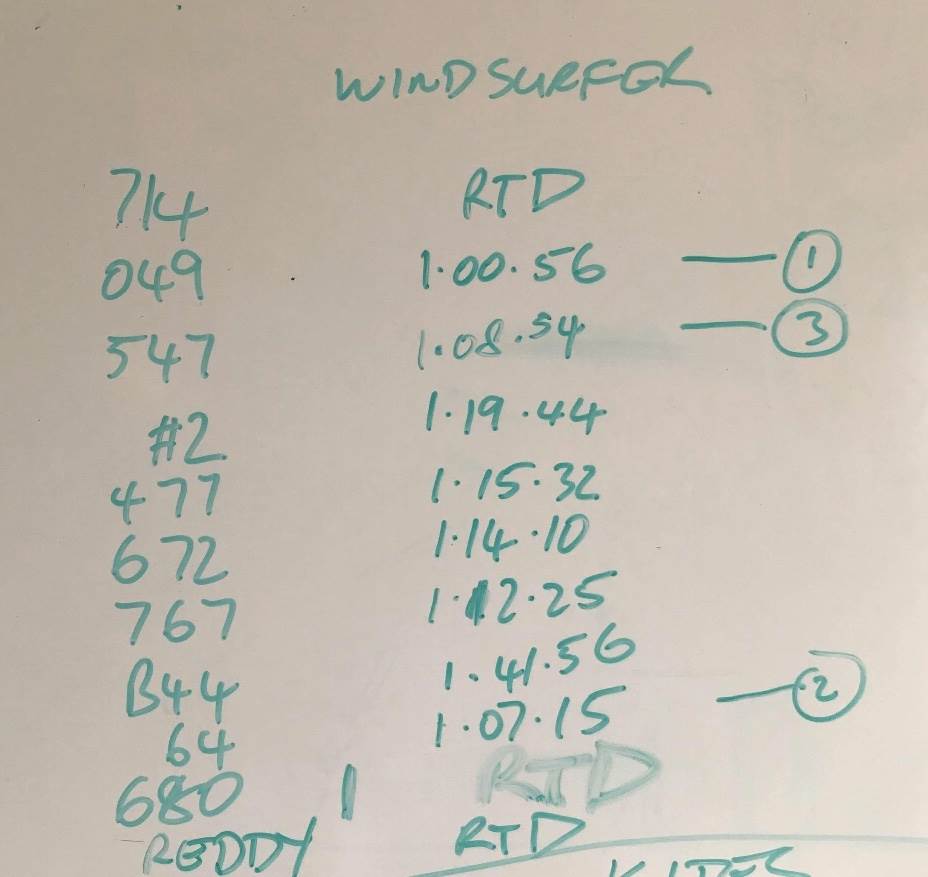 WINDSURFER
714 RTD
049 1.00.56 — 1
547 1.08.54 — 3
#2 1.19.44
477 1.15.32
672 1.14.10
767 1.12.25
B44 1.41.56
64 1.07.15 — 2
680 1 RTD
REDDY RTD